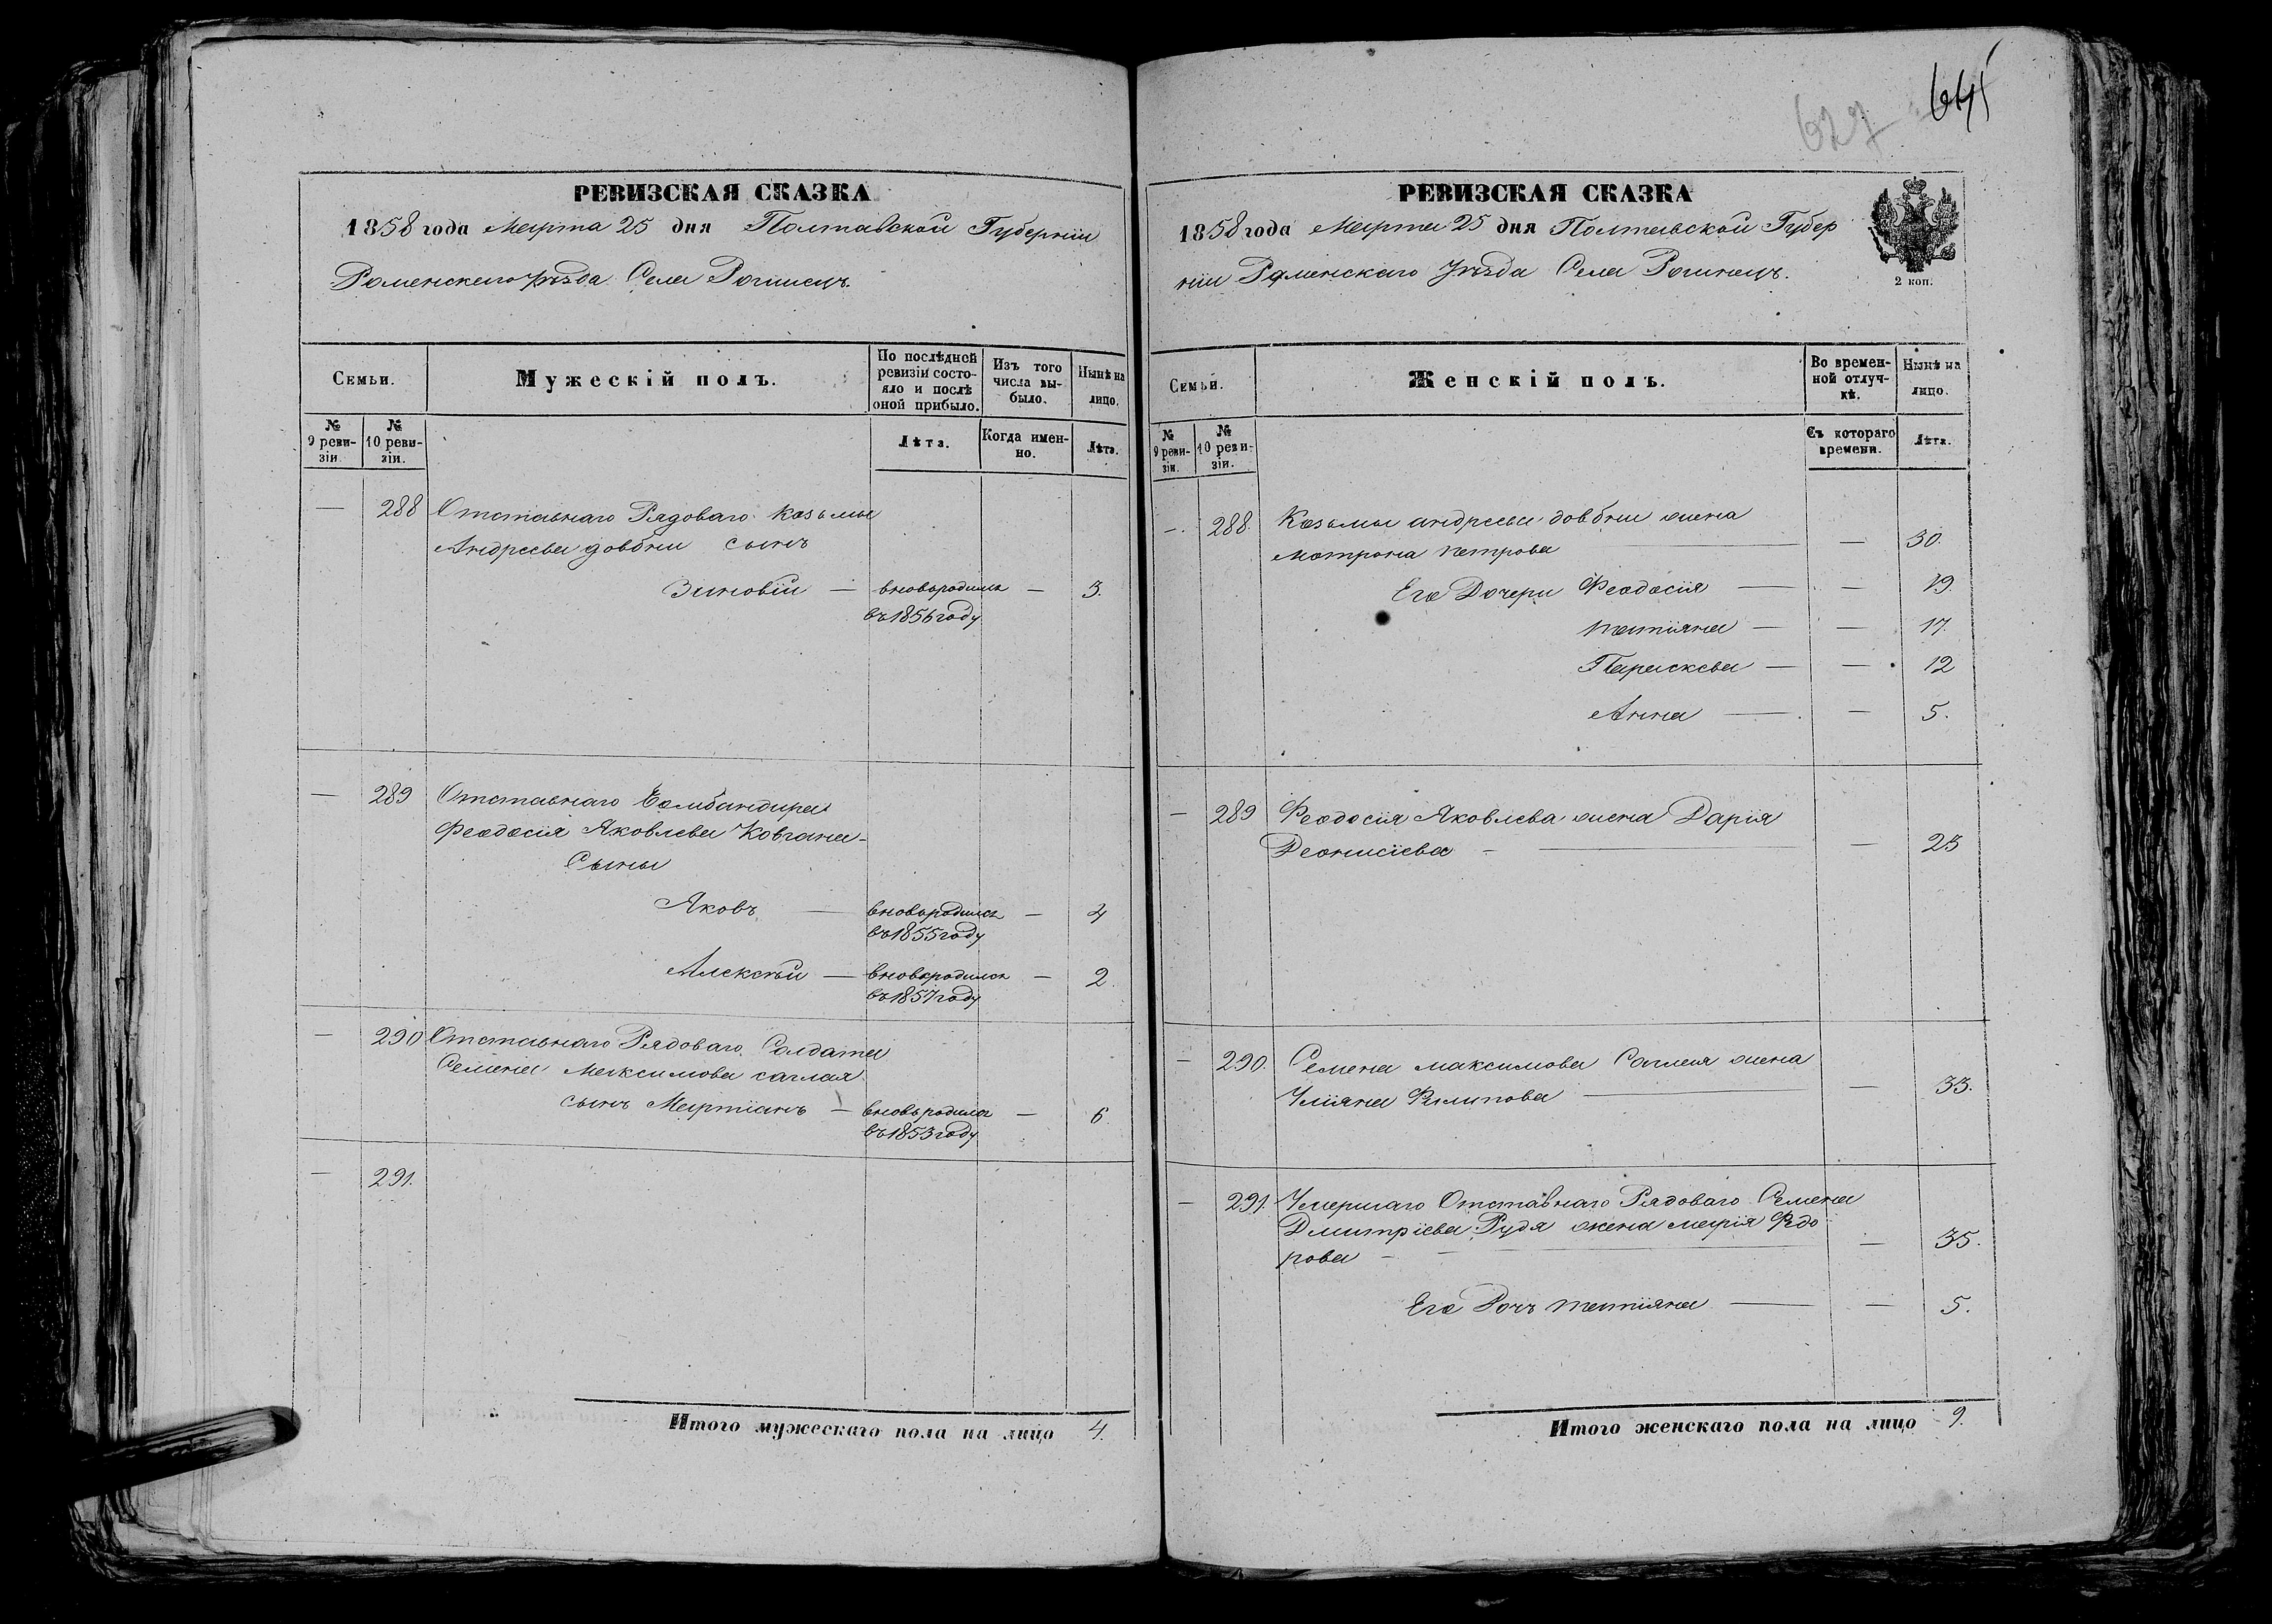 РЕВИЗСКАЯ СКАЗКА
1858 года Марта 25 дня Полтавской Губерніи
Роменскаго уѣзда Села Рогинецъ.
Семьи.
Мужескій полъ.
По послѣдней ревизіи состояло и послѣ оной прибыло.
Изъ того числа выбыло.
Нынѣ на лицо.
№ 9 ревизіи.
№ 10 ревизіи.
Лѣта.
Когда именно.
Лѣта.
— 288 Отставнаго Рядоваго Козьмы
Андреева довбни сынъ
Зиновій — вновьродился — 3.
въ 1856 году
— 289 Отставнаго Бомбандира
Феодосія Яковлева Ковгана
Сыны
Яковъ — вновьродился — 4
въ 1855 году
Алексѣй — вновьродился — 2.
въ 1857 году
— 290 Отставнаго Рядоваго Солдата
Семена Максимова саглая
сынъ Мартіанъ — вновьродился — 6.
въ 1853 году
— 291.
Итого мужескаго пола на лицо 4.
627 645
РЕВИЗСКАЯ СКАЗКА
1858 года Марта 25 дня Полтавской Губер
ніи Роменскаго Уѣзда Села Рогинецъ.
2 коп.
Семьи.
Женскій полъ.
Во временной отлучкѣ.
Нынѣ на лицо.
№ 9 ревизіи.
№ 10 ревизіи.
Съ котораго времени.
Лѣта.
— 288. Козьмы андреева довбни жена
мотрона петрова — — 30.
Его Дочери Феодосія — — 19.
татіяна — — 17.
Параскева — — 12
Анна — — 5.
— 289 Феодосія Яковлева жена Дарія
Деонисіева — — 25
— 290. Семена максимова Саглая жена
Уліяна Филипова — — 33.
— 291. Умершаго Отставнаго Рядоваго Семена
Дмитріева Рудя жена марія Фидо
рова — — 35.
Его Дочь татіяна — — 5.
Итого женскаго пола на лицо 9.